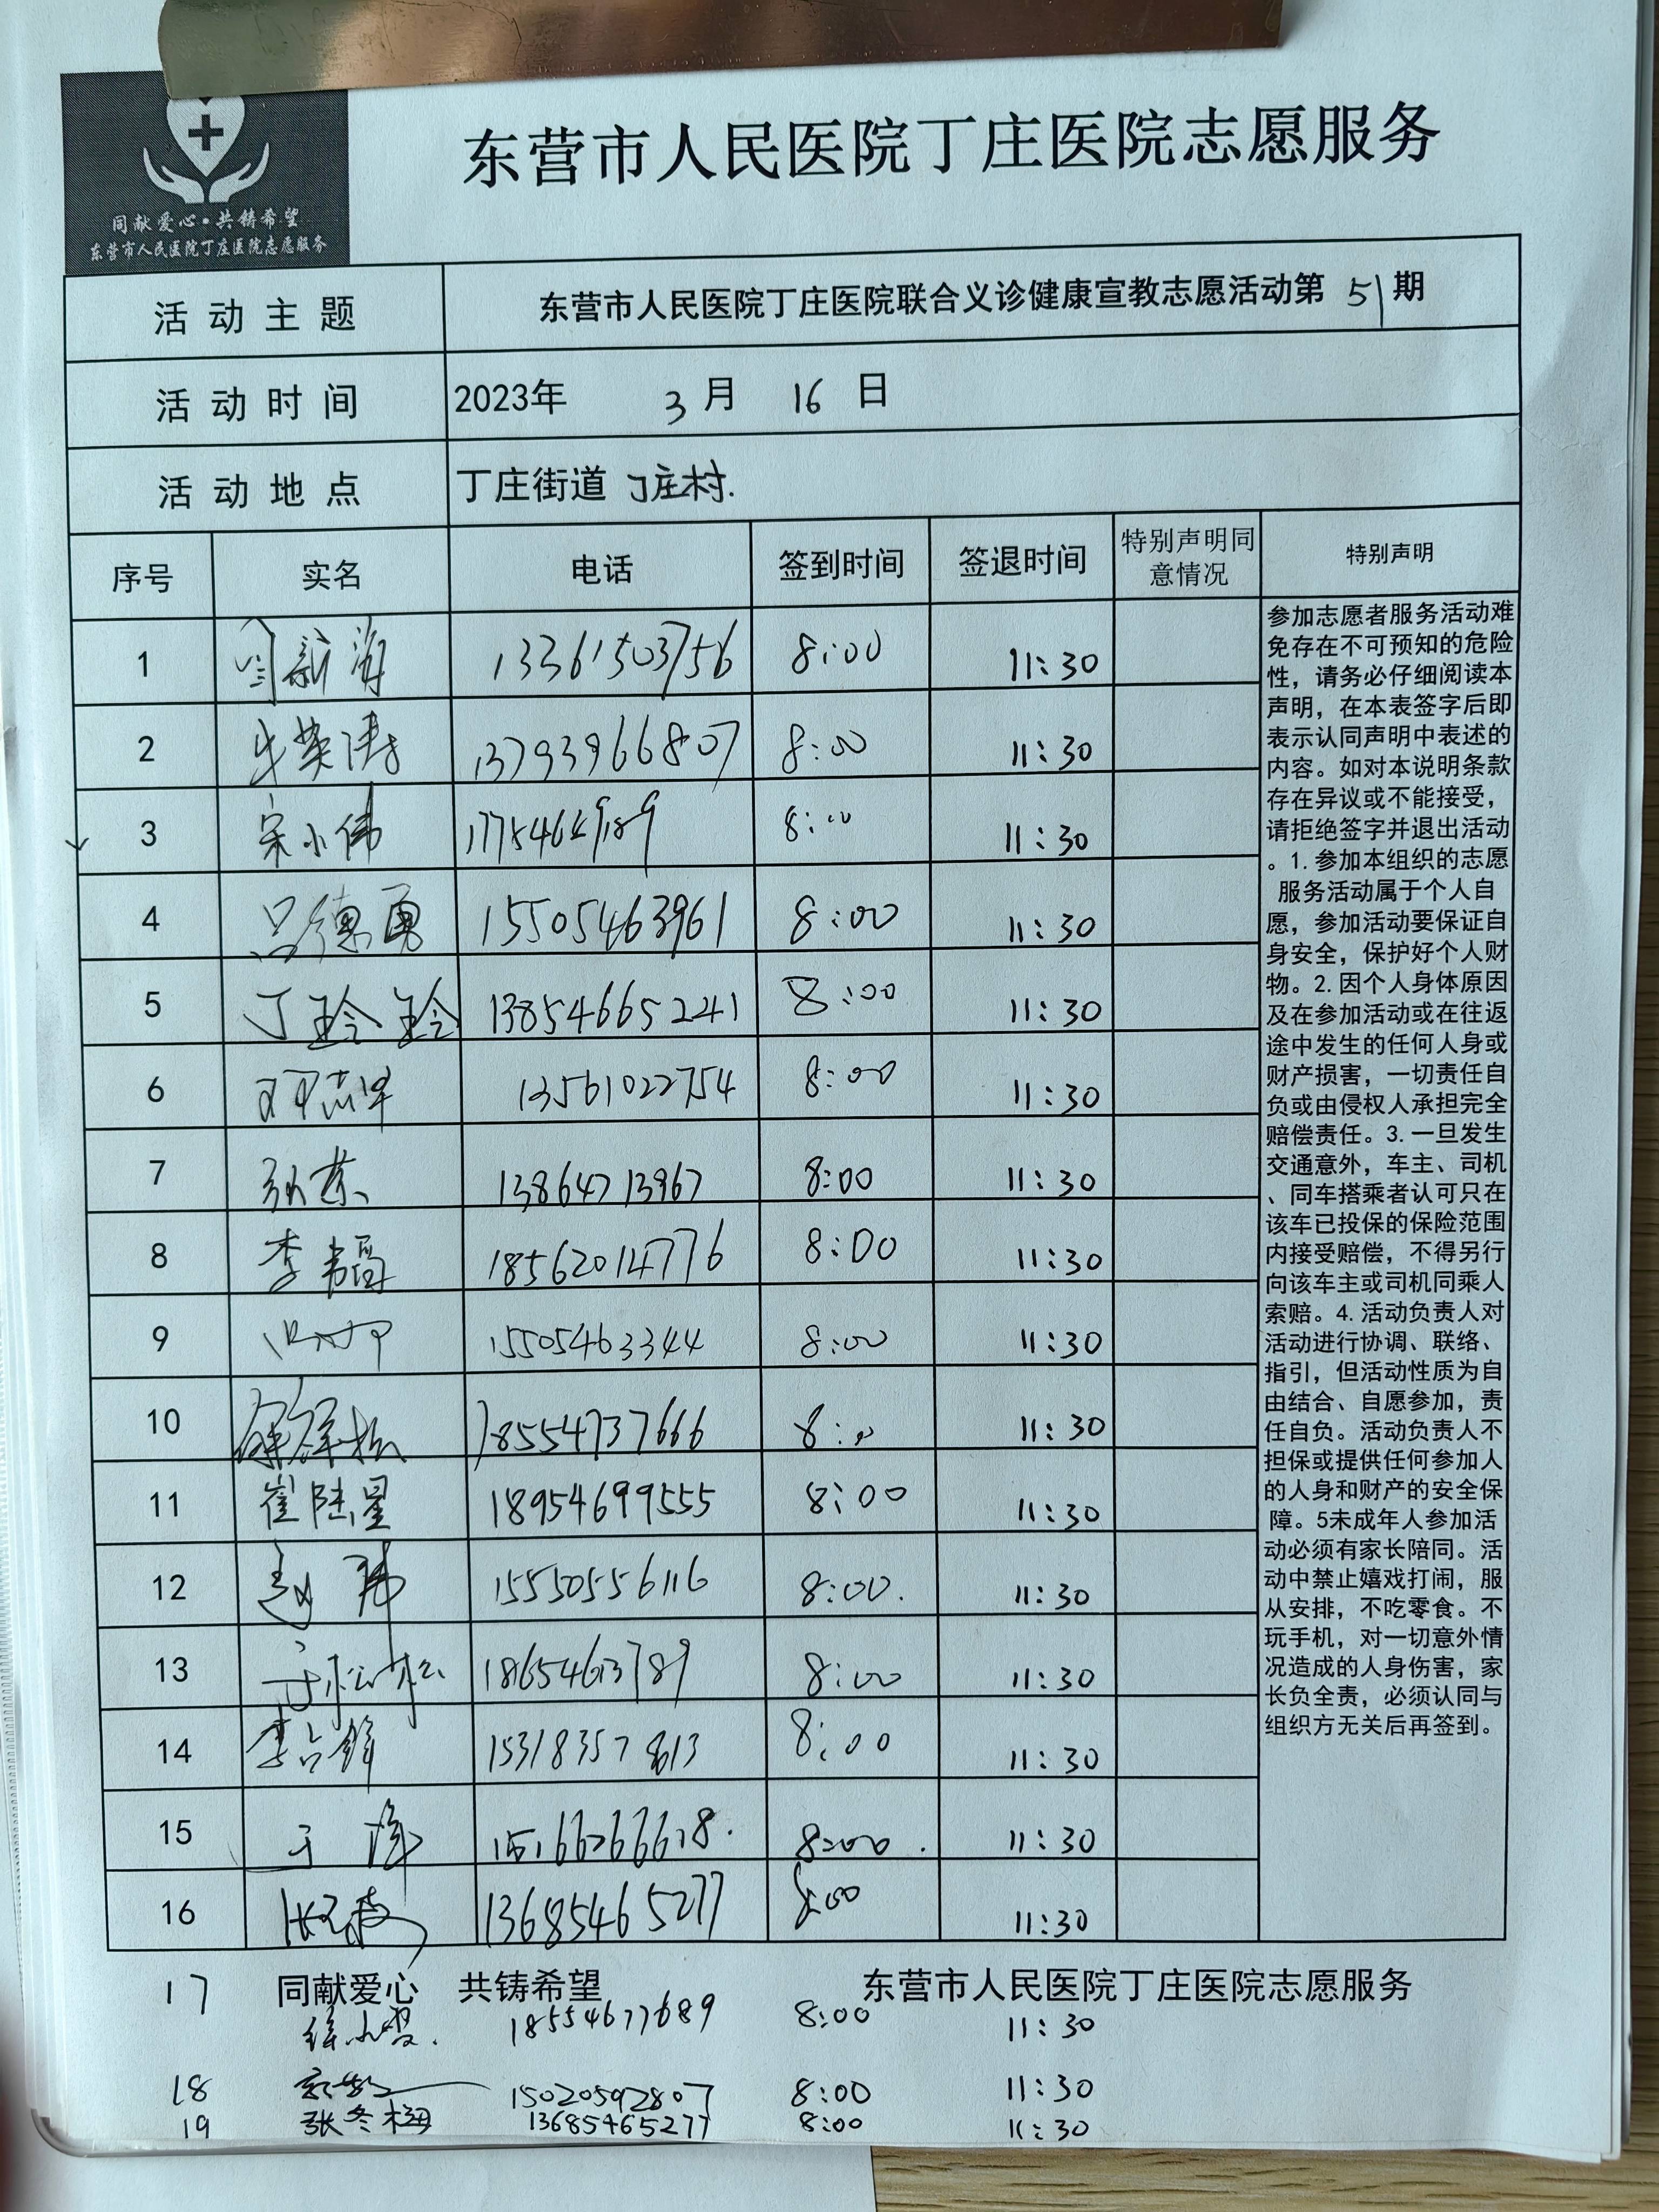 同献爱心·共铸希望
东营市人民医院丁庄医院志愿服务
东营市人民医院丁庄医院志愿服务
活动主题 东营市人民医院丁庄医院联合义诊健康宣教志愿活动第 51 期
活动时间 2023年 3 月 16 日
活动地点 丁庄街道 丁庄村.
序号 实名 电话 签到时间 签退时间 特别声明同意情况 特别声明
1 13361503756 8:00 11:30
2 牛英涛 13793966807 8:00 11:30
3 宋小伟 8:00 11:30
4 吕德勇 15505463961 8:00 11:30
5 丁玲玲 13854665241 8:00 11:30
6 邓志军 13561022754 8:00 11:30
7 13864713967 8:00 11:30
8 李 18562014776 8:00 11:30
9 15505463344 8:00 11:30
10 18554737666 8:00 11:30
11 崔陆星 18954699555 8:00 11:30
12 赵 15550556116 8:00. 11:30
13 18654613789 8:00 11:30
14 李占锋 15318357813 8:00 11:30
15 于 8:00. 11:30
16 13685465277 8:00 11:30
参加志愿者服务活动难
免存在不可预知的危险
性，请务必仔细阅读本
声明，在本表签字后即
表示认同声明中表述的
内容。如对本说明条款
存在异议或不能接受，
请拒绝签字并退出活动
。1.参加本组织的志愿
服务活动属于个人自
愿，参加活动要保证自
身安全，保护好个人财
物。2.因个人身体原因
及在参加活动或在往返
途中发生的任何人身或
财产损害，一切责任自
负或由侵权人承担完全
赔偿责任。3.一旦发生
交通意外，车主、司机
、同车搭乘者认可只在
该车已投保的保险范围
内接受赔偿，不得另行
向该车主或司机同乘人
索赔。4.活动负责人对
活动进行协调、联络、
指引，但活动性质为自
由结合、自愿参加，责
任自负。活动负责人不
担保或提供任何参加人
的人身和财产的安全保
障。5未成年人参加活
动必须有家长陪同。活
动中禁止嬉戏打闹，服
从安排，不吃零食。不
玩手机，对一切意外情
况造成的人身伤害，家
长负全责，必须认同与
组织方无关后再签到。
同献爱心 共铸希望 东营市人民医院丁庄医院志愿服务
17 徐小雯. 18554677689 8:00 11:30
18 15020592807 8:00 11:30
19 张冬梅 13685465277 8:00 11:30